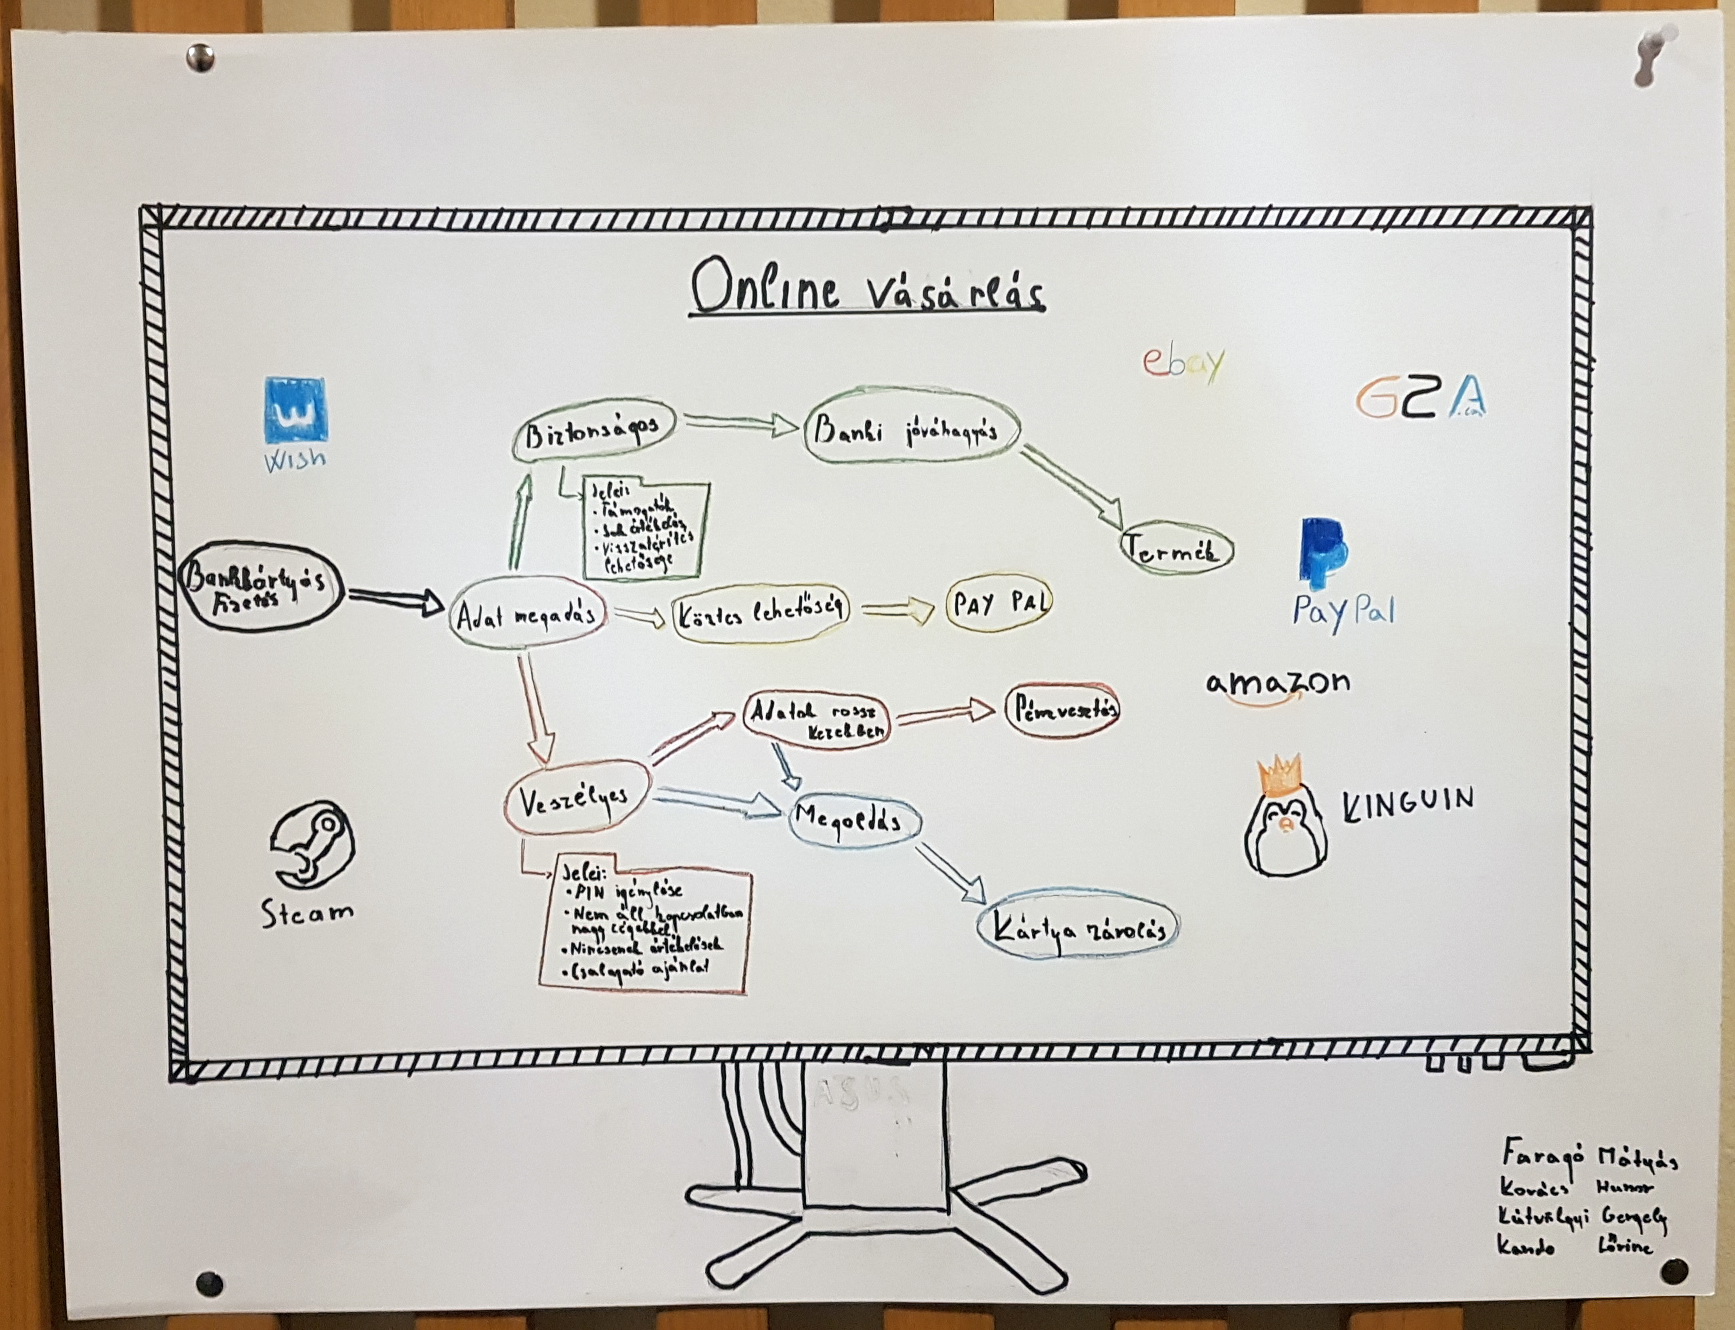 Online vásárlás
ebay
G2A
.com
W
Wish
Biztonságos
Banki jóváhagyás
Jelei:
• Támogatók
• Sok értékelés
• Visszatérítés
lehetősége
Termék
P
PayPal
Bankkártyás
Fizetés
Adat megadás
Köztes lehetőség
PAY PAL
amazon
Adatok rossz
kezekben
Pénzvesztés
Veszélyes
Megoldás
KINGUIN
Steam
Jelei:
• PIN igénylése
• Nem áll kapcsolatban
nagy cégekkel
• Nincsenek értékelések
• Csalogató ajánlat
Kártya zárolás
ASUS
Faragó Mátyás
Kovács Hunor
Kútvölgyi Gergely
Kando Lőrinc